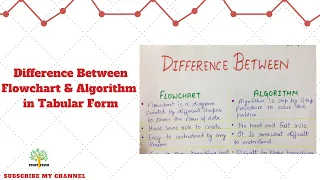 Difference Between
Flowchart & Algorithm
in Tabular Form
SUBSCRIBE MY CHANNEL
DIFFERENCE BETWEEN
FLOWCHART
Flowchart is a diagram
created by different shapes
to show the flow of data
Have some rule to create
Easy to understand by any
Person
ALGORITHM
Algorithm is step by step
procedure to solve the
problem
No hard and fast rule
It is somewhat difficult
to understand